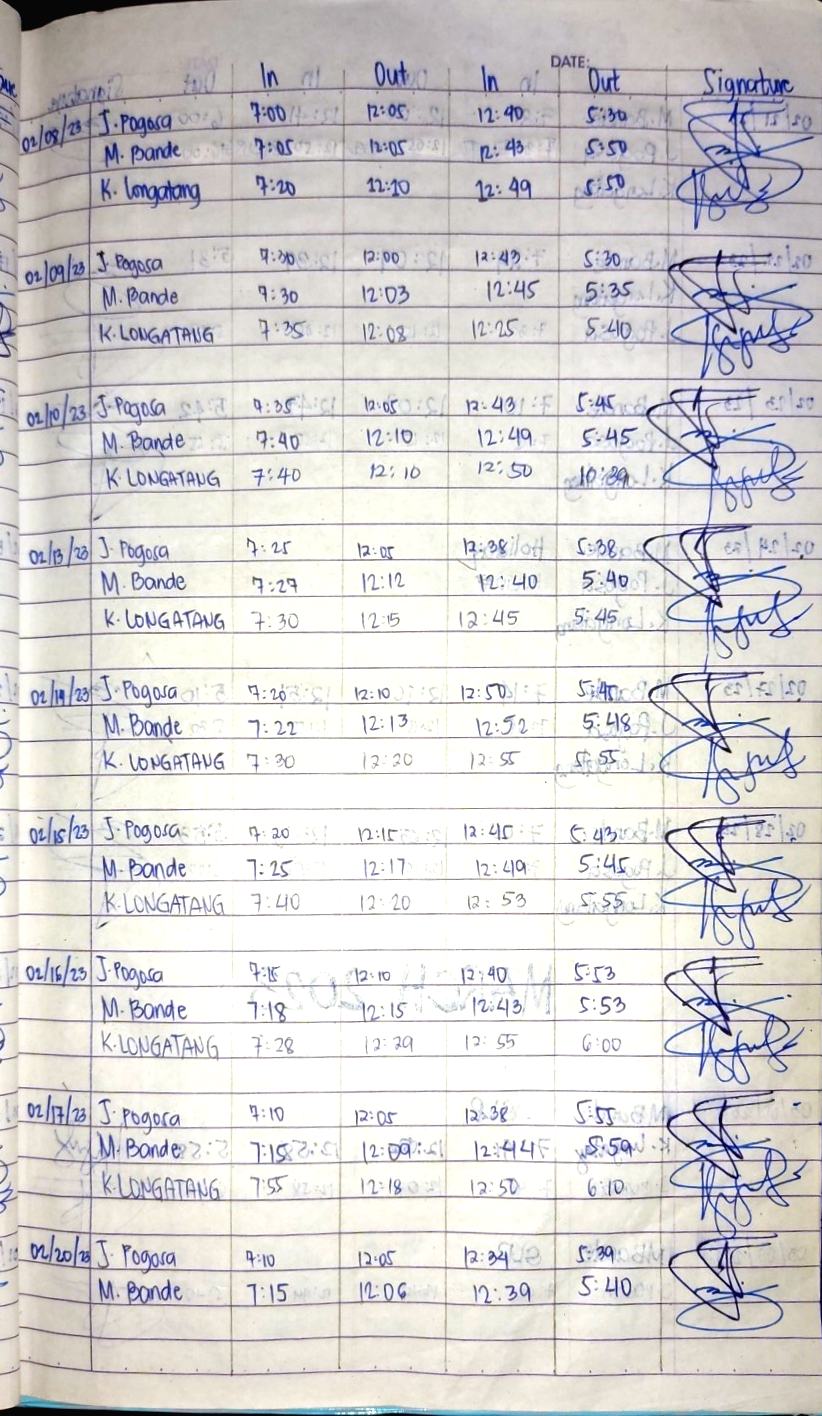 DATE:
In Out In Out Signature
02/08/23 J. Pogosa 7:00 12:05 12:40 5:30
M. Bande 7:05 12:05 12:43 5:50
K. Longatang 7:20 12:10 12:49 5:50
02/09/23 J. Pogosa 7:30 12:00 12:43 5:30
M. Bande 7:30 12:03 12:45 5:35
K. LONGATANG 7:35 12:08 12:25 5:40
02/10/23 J. Pogosa 7:35 12:05 12:43 5:45
M. Bande 7:40 12:10 12:49 5:45
K. LONGATANG 7:40 12:10 12:50 10:39
02/13/23 J. Pogosa 7:25 12:05 12:38 5:38
M. Bande 7:27 12:12 12:40 5:40
K. LONGATANG 7:30 12:15 12:45 5:45
02/14/23 J. Pogosa 7:20 12:10 12:50 5:45
M. Bande 7:22 12:13 12:52 5:48
K. LONGATANG 7:30 12:20 12:55 5:55
02/15/23 J. Pogosa 7:20 12:15 12:45 5:43
M. Bande 7:25 12:17 12:49 5:45
K. LONGATANG 7:40 12:20 12:53 5:55
02/16/23 J. Pogosa 7:15 12:10 12:40 5:53
M. Bande 7:18 12:15 12:43 5:53
K. LONGATANG 7:28 12:29 12:55 6:00
02/17/23 J. Pogosa 7:10 12:05 12:38 5:55
M. Bande 7:15 12:09 12:44 5:59
K. LONGATANG 7:55 12:18 12:50 6:10
02/20/23 J. Pogosa 7:10 12:05 12:34 5:39
M. Bande 7:15 12:06 12:39 5:40